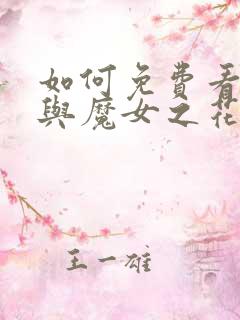 如何免費看
與魔女之花
王一雄